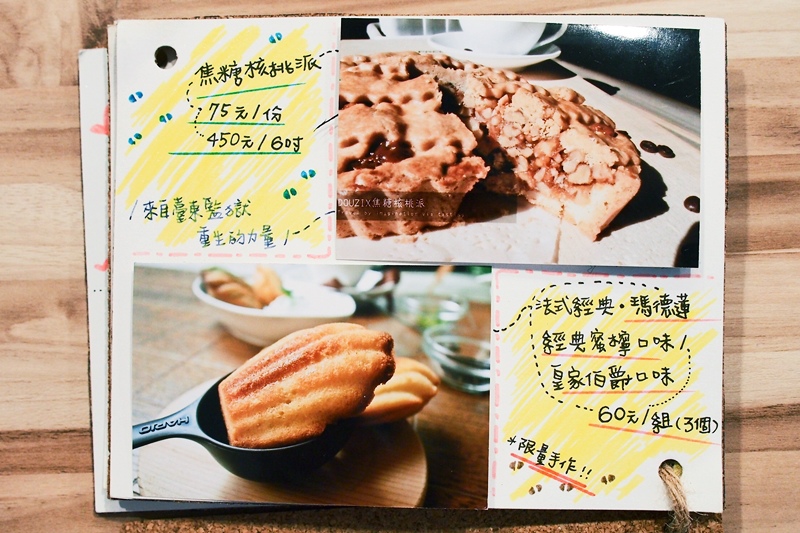 焦糖核桃派
75元/份
450元/6吋
/來自臺東監獄
重生的力量/
DOUZIX焦糖核桃派
HARIO
法式經典·瑪德蓮
經典蜜檸口味/
皇家伯爵口味
60元/組(3個)
*限量手作!!